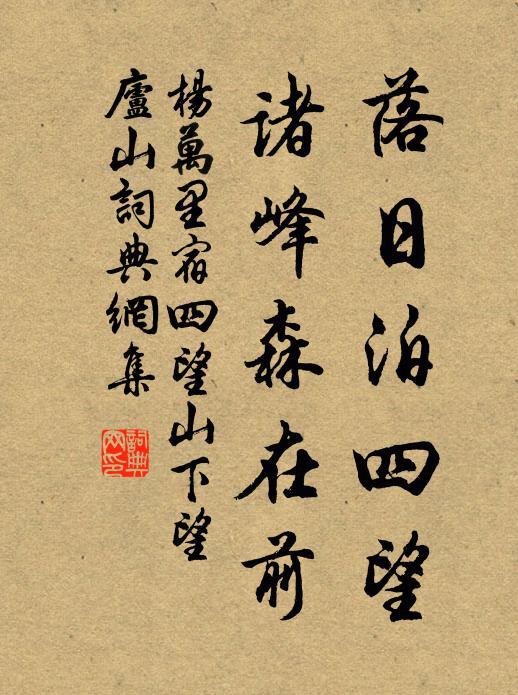 落日泊四望
諸峰森在前
楊萬里宿四望山下望
廬山詞典網集
詞典網印